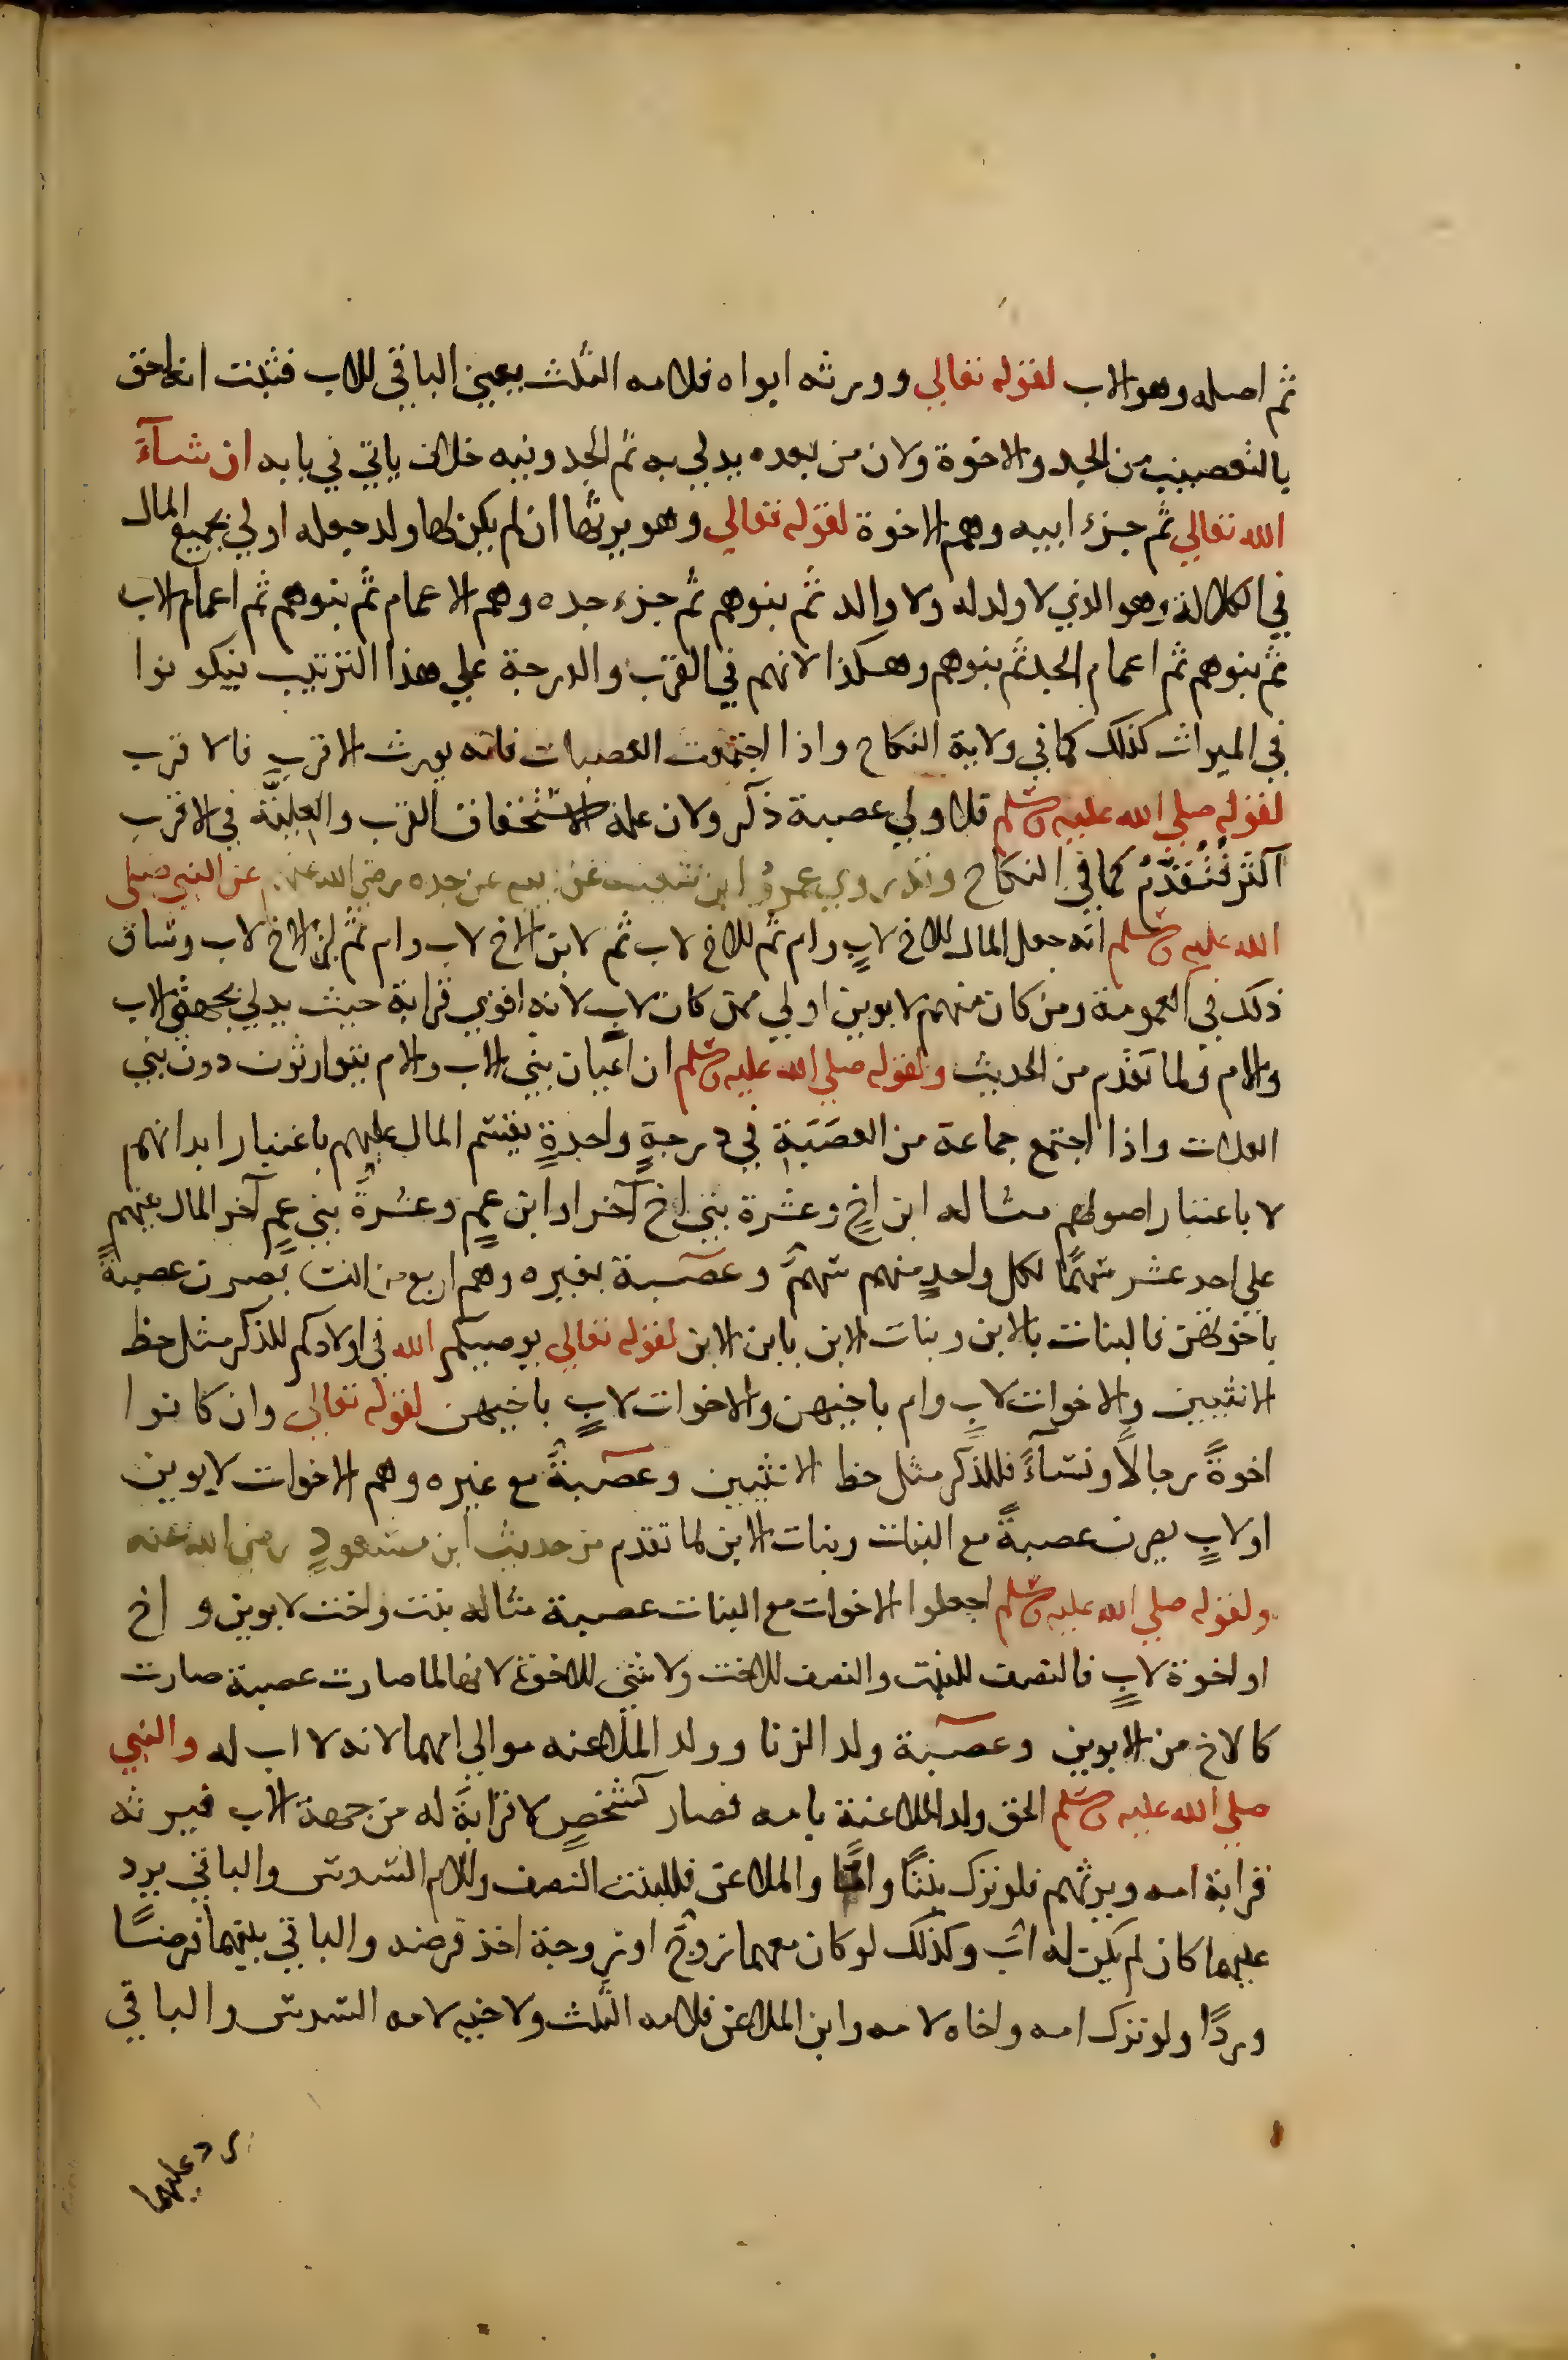 ثم اصله وهو الاب لقوله تعالي وورثه ابواه فلامه الثلث يعين الباقي للاب فثبت انه احق
بالتعصيب من الجد والاخوة ولان من بعده يدلي به ثم الجد وفيه خلاف ياتي في بابه ان شآءَ
الله تعالي ثم جزء ابيه وهم الاخوة لقوله تعالي وهو يرثها ان لم يكن لها ولد جعله اولي بجميع المال
في الكلالة وهو الذي لا ولد له ولا والد ثم بنوهم ثم جزء جده وهم الاعمام ثم بنوهم ثم اعمام الاب
ثم بنوهم ثم اعمام الجد ثم بنوهم وهكذا لانهم في القرب والدرجة علي هذا الترتيب فيكونوا
في الميراث كذلك كما في ولاية النكاح واذا اجتمعت العصبات فانه يورث الاقرب فالاقرب
لقوله صلي الله عليه وسلم فلاولي عصبة ذكر ولان علة الاستحقاق القرب والعلية في الاقرب
اكثر فتقدم كما في النكاح وقد روي عمرو ابن شعيب عن ابيه عن جده رضي الله عنهم عن النبي صلي
الله عليه وسلم انه جعل المال للاخ لابٍ وام ثم للاخ لاب ثم لابن الاخ لاب وام ثم لابن الاخ لاب وساق
ذلك في العمومة ومن كان منهم لابوين اولي ممن كان لابٍ لانه اقوي قرابة حيث يدلي بجهتي الاب
والام ولما تقدم من الحديث ولقوله صلي الله عليه وسلم ان اعيان بني الاب والام يتوارثون دون بني
العلات واذا اجتمع جماعة من العصبة في درجةٍ واحدةٍ يقسم المال عليهم باعتبار ابدانهم
لا باعتبار اصولهم مثاله ابن اخٍ وعشرة بني اخ آخر او ابن عمٍ وعشرة بني عمٍ آخر المال بينهم
علي احد عشر سهمًا لكل واحدٍ منهم سهم وعصبة بغيره وهم اربع من النسا يصرن عصبةً
باخوتهن فالبنات بالابن وبنات الابن بابن الابن لقوله تعالي يوصيكم الله في اولادكم للذكر مثل حظ
الانثيين والاخوات لابٍ وام باخيهن والاخوات لابٍ باخيهن لقوله تعالي وان كانوا
اخوةً رجالاً ونسآءً فللذكر مثل حظ الانثيين وعصبةً مع غيره وهم الاخوات لابوين
او لابٍ يصرن عصبةً مع البنات وبنات الابن لما تقدم من حديث ابن مسعودٍ رضي الله عنه
ولقوله صلي الله عليه وسلم اجعلوا الاخوات مع البنات عصبة مثاله بنت واخت لابوين و اخ
او اخوة لابٍ فالنصف للبنت والنصف للاخت ولا شئ للاخوة لانها لما صارت عصبة صارت
كالاخ من الابوين وعصبة ولد الزنا وولد الملاعنه موالي امهما لانه لا اب له والنبي
صلي الله عليه وسلم الحق ولد الملاعنة بامه فصار كشخصٍ لا قرابة له من جهة الاب فيرثه
قرابة امه ويرثهم فلو ترك بنتًا وامًا والملاعن فللبنت النصف وللام السدس والباقي يرد
عليهما كان لم يكن له اب وكذلك لو كان معهما زوج او زوجة اخذ فرضه والباقي بينهما فرضًا
وردًا ولو ترك امه واخاه لامه وابن الملاعن فلامه الثلث ولاخيه لامه السدس والباقي
رد عليهما